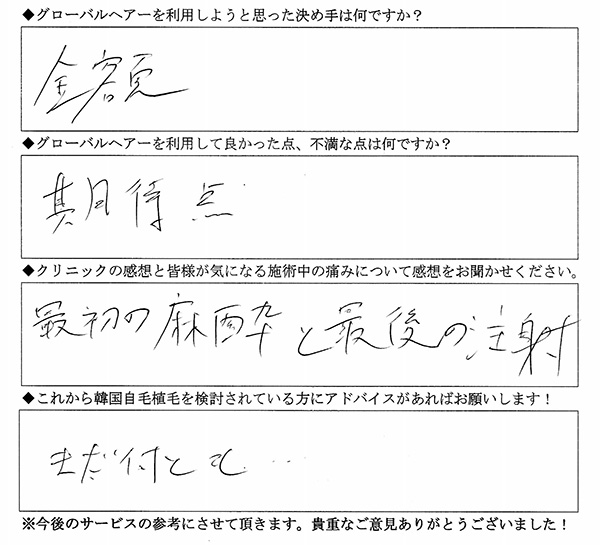 ◆グローバルヘアーを利用しようと思った決め手は何ですか？
金額
◆グローバルヘアーを利用して良かった点、不満な点は何ですか？
期待点
◆クリニックの感想と皆様が気になる施術中の痛みについて感想をお聞かせください。
最初の麻酔と最後の注射
◆これから韓国自毛植毛を検討されている方にアドバイスがあればお願いします！
まだ何とも…
※今後のサービスの参考にさせて頂きます。貴重なご意見ありがとうございました！